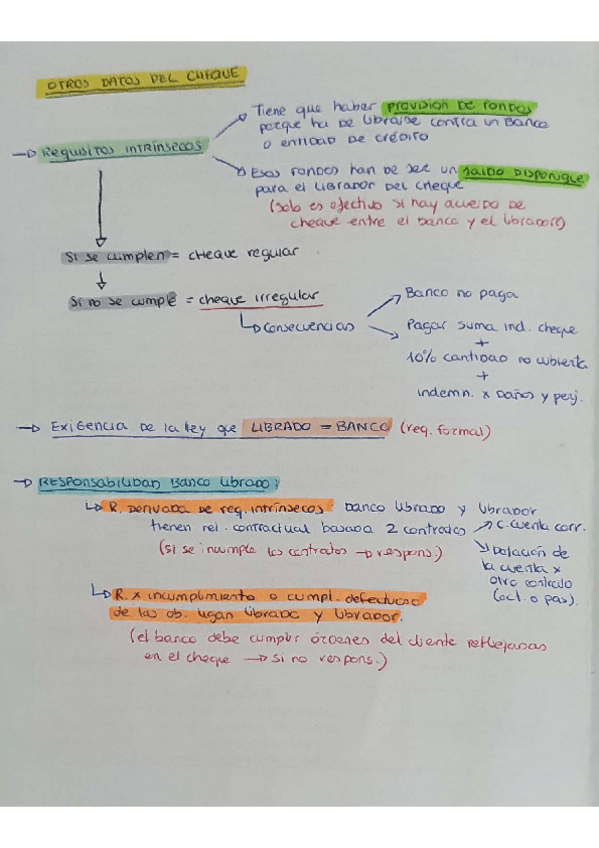 OTROS DATOS DEL CHEQUE
Tiene que haber PROVISIÓN DE FONDOS
porque ha de librarse contra un Banco
o entidad de crédito
→ Requisitos intrínsecos
Esos fondos han de ser un saldo disponible
para el librador del cheque
(solo es efectivo si hay acuerdo de
cheque entre el banco y el librador)
Si se cumplen = cheque regular
Si no se cumple = cheque irregular
Consecuencias
Banco no paga
Pagar suma ind. cheque
+
10% cantidad no cubierta
+
indemn. x Daños y perj.
→ Exigencia de la ley que LIBRADO = BANCO (req. formal)
→ RESPONSABILIDAD Banco librado:
R. derivada de req. intrínsecos: banco librado y librador
tienen rel. contractual basada 2 contratos
C. cuenta corr.
(si se incumple los contratos → respons.)
Dotación de
la cuenta x
otro contrato
(act. o pas).
R. x incumplimiento o cumpl. defectuoso
de las ob. ligan librado y librador.
(el banco debe cumplir órdenes del cliente reflejadas
en el cheque → si no respons.)